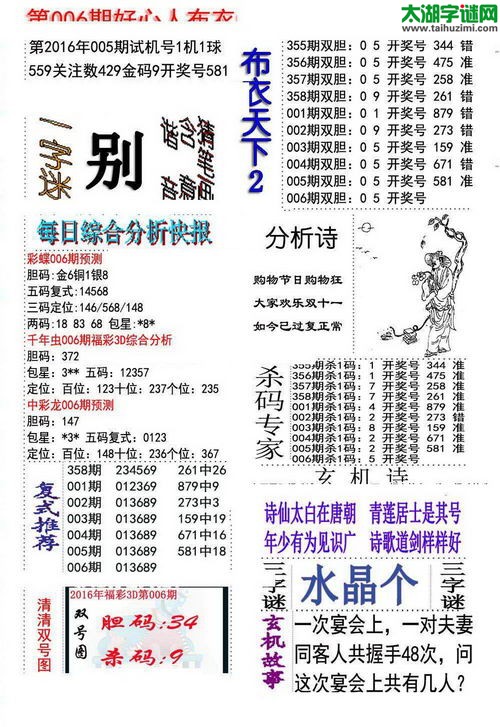 第006期好心人布衣
太湖字谜网
www.taihuzimi.com
第2016年005期试机号1机1球
559关注数429金码9开奖号581
一字迷
别
布衣天下2
355期双胆: 0 5 开奖号 344 错
356期双胆: 0 5 开奖号 475 准
357期双胆: 0 5 开奖号 258 准
358期双胆: 0 9 开奖号 261 错
001期双胆: 0 1 开奖号 879 错
002期双胆: 0 9 开奖号 273 错
003期双胆: 0 5 开奖号 159 准
004期双胆: 0 5 开奖号 671 错
005期双胆: 0 5 开奖号 581 准
006期双胆: 0 5 开奖号
每日综合分析快报
彩蝶006期预测
胆码: 金6铜1银8
五码复式: 14568
三码定位: 146/568/148
两码: 18 83 68 包星: *8*
千年虫006期福彩3D综合分析
胆码: 372
包星: 3** 五码: 12357
定位: 百位: 123十位: 237个位: 235
中彩龙006期预测
胆码: 147
包星: *3* 五码复式: 0123
定位: 百位: 148十位: 236个位: 367
分析诗
购物节日购物狂
大家欢乐双十一
如今已过复正常
杀码专家
355期杀1码: 1 开奖号 344 准
356期杀1码: 4 开奖号 475 错
358期杀1码: 7 开奖号 261 准
001期杀1码: 4 开奖号 879 准
002期杀1码: 3 开奖号 273 错
003期杀1码: 2 开奖号 159 准
004期杀1码: 2 开奖号 671 准
006期杀1码: 5 开奖号
复式推荐
358期 234569 261中26
001期 012369 879中9
002期 013689 273中3
003期 013689 159中19
004期 013689 671中16
005期 013689 581中18
006期 013689
玄机诗
诗仙太白在唐朝 青莲居士是其号
年少有为见识广 诗歌道剑样样好
清清双号图
2016年福彩3D第006期
双号图
胆码:34
杀码:9
三字谜
水晶个
三字谜
玄机故事
一次宴会上，一对夫妻
同客人共握手48次，问
这次宴会上共有几人？